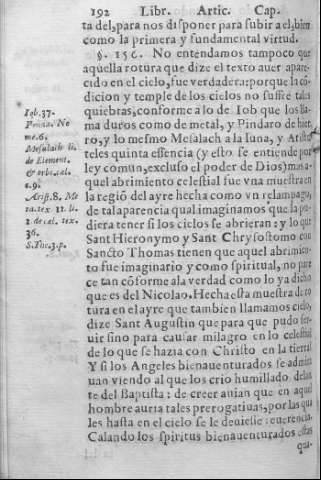 192 Libr. Artic. Cap.
ta del, para nos disponer para subir a el, bien
como la primera y fundamental virtud.
§. 156. No entendamos tampoco que
aquella rotura que dize el texto auer apare-
cido en el cielo, fue verdadera: porque la cō
dicion y temple de los cielos no suffre tales
quiebras, conforme a lo de Iob que los lla-
ma duros como de metal, y Pindaro de hier-
ro, y lo mesmo Mesalach a la luna, y Aristo
teles quinta essencia (y esto se entiende por
ley comun, excluso el poder de Dios) mas a-
quel abrimiento celestial fue vna muestra en
la regiō del ayre hecha como vn relampago,
de tal aparencia qual imaginamos que la pu-
diera tener si los cielos se abrieran: y lo que
Sant Hieronymo y Sant Chrysostomo con
Sancto Thomas tienen que aquel abrimien-
to fue imaginario y como spiritual, no pare
ce tan cōforme a la verdad como lo ya dicho
que es del Nicolao. Hecha esta muestra de ro
tura en el ayre que tambien llamamos cielo,
dize Sant Augustin que para que pudo ser-
uir sino para causar milagro en lo celestial
de lo que se hazia con Christo en la tierra?
Y si los Angeles bienauenturados se admira
uan viendo al que los crio humillado delan
te del Baptista: de creer auian que en aquel
hombre auria tales prerogatiuas, por las qua
les hasta en el cielo se le deuiesse reuerencia.
Calando los spiritus bienauenturados estas
qua-
Iob. 37.
me. 6.
Mesalach li.
de Element.
& orbi. cal.
c. 9.
Arist. 8. Me
ta. tex. 12. li.
2. de cal. tex.
36.
S. Tho. 3. p.